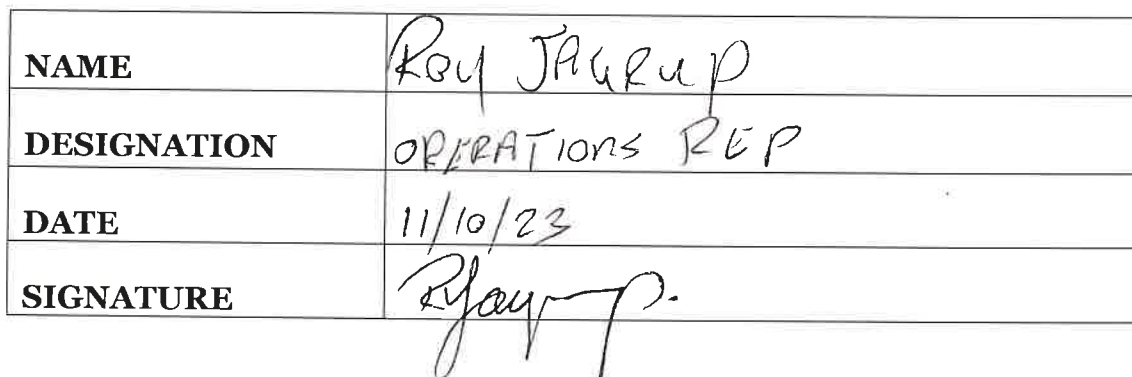 NAME Roy JAGRUP
DESIGNATION OPERATIONS REP
DATE 11/10/23
SIGNATURE RJagrup.